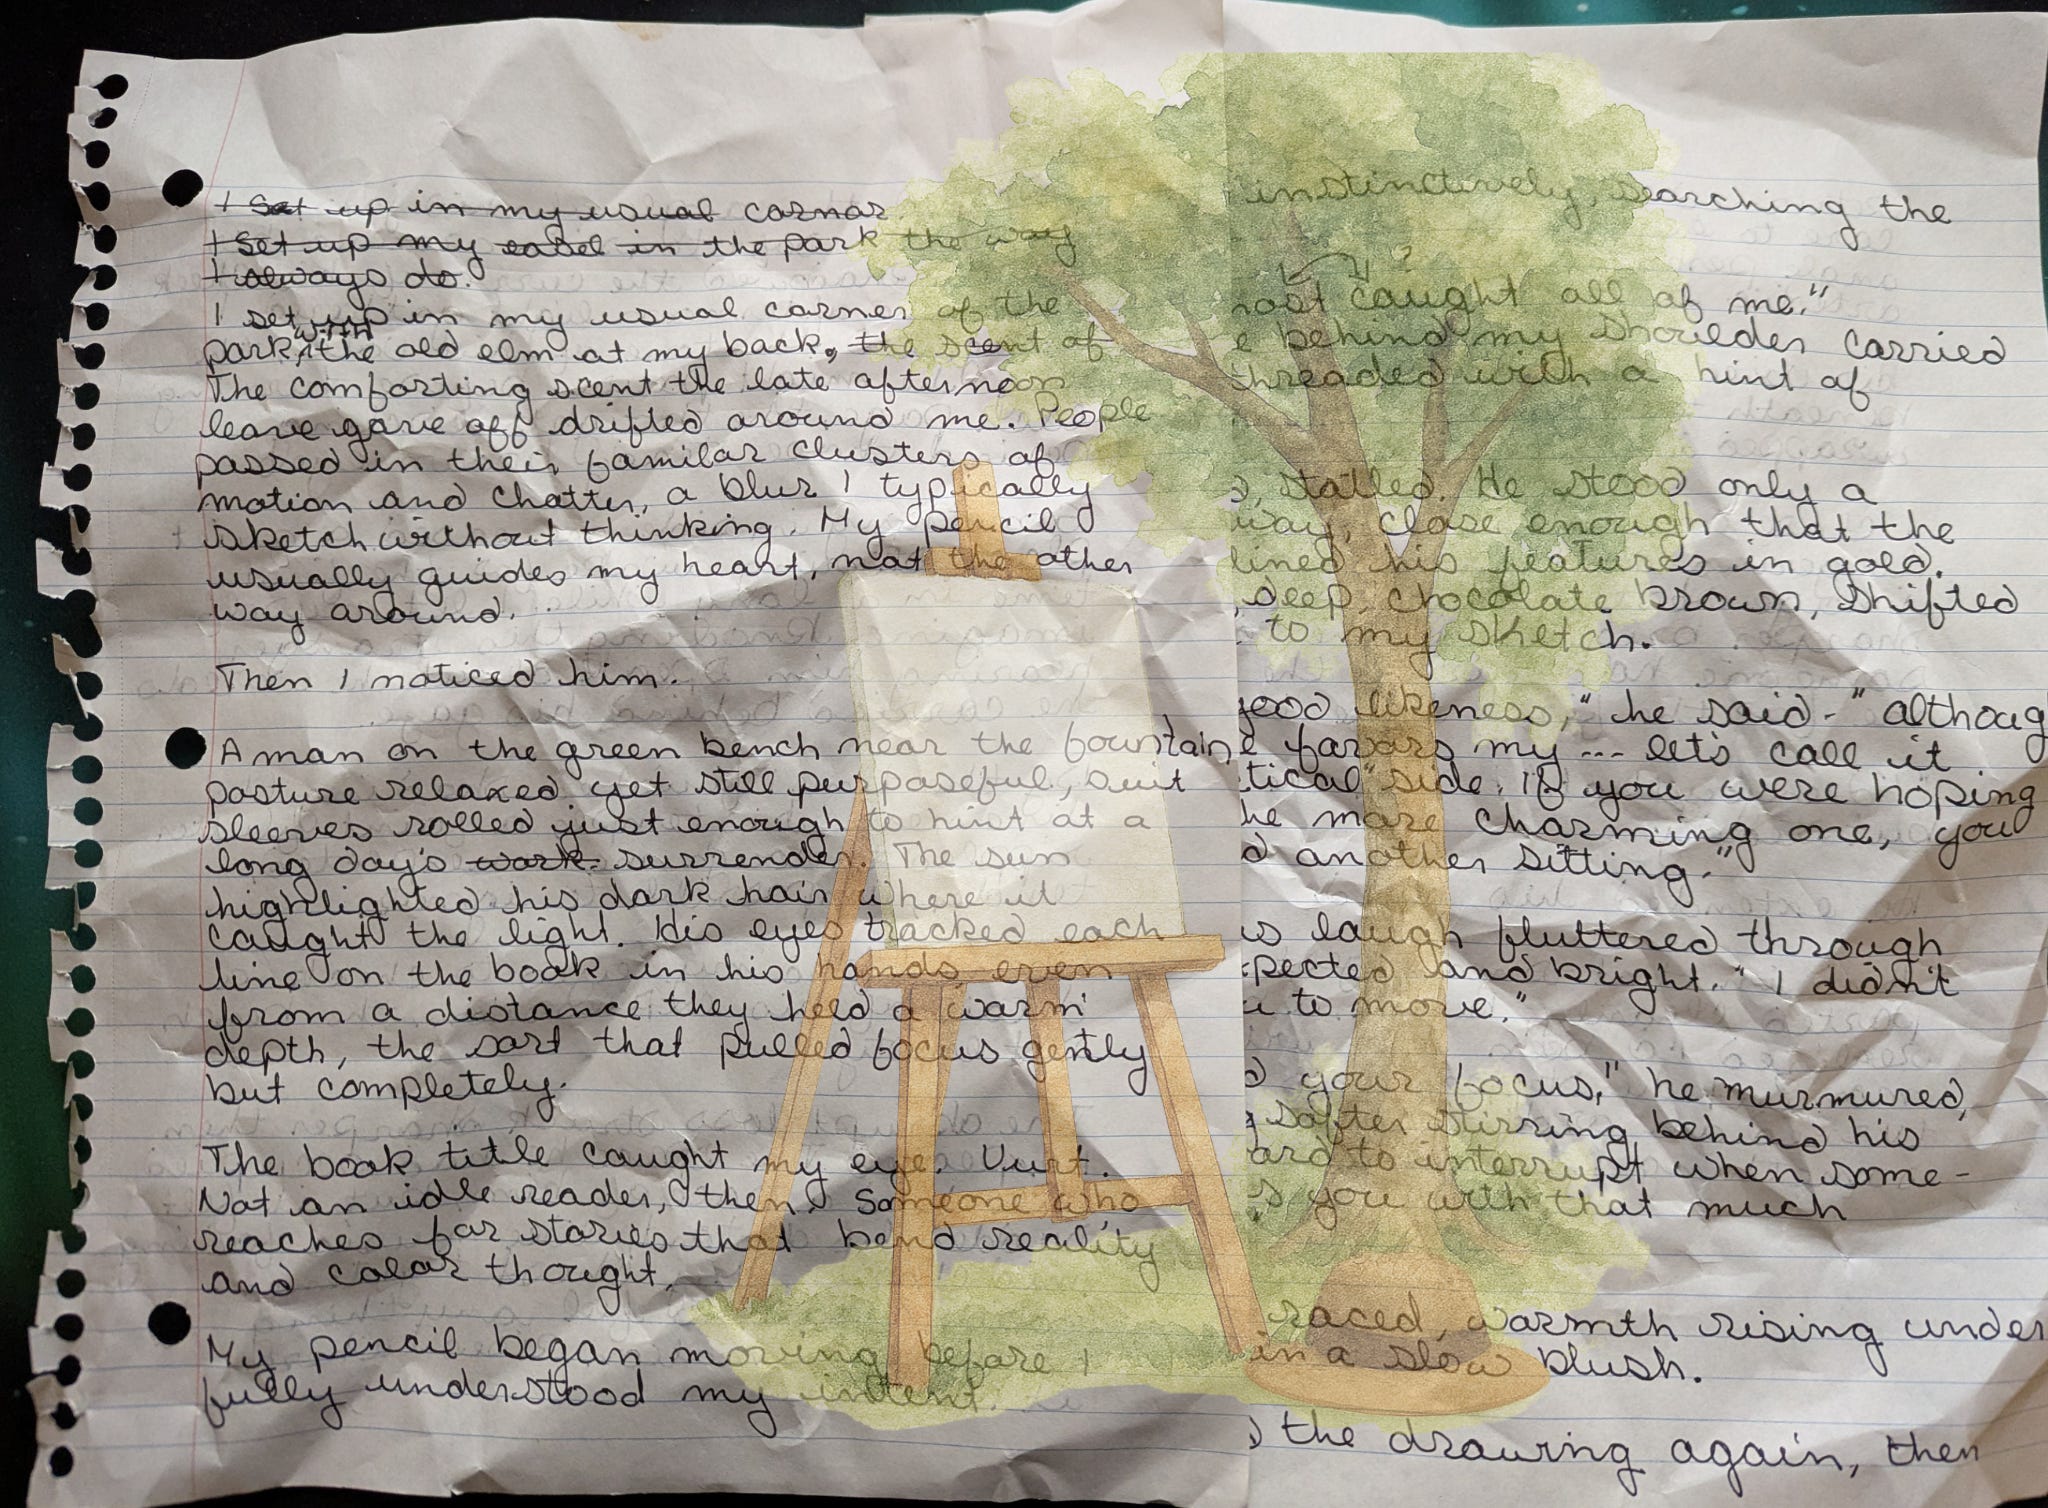 I set up in my usual corner
I set up my easel in the park the way
I always do.
I set up in my usual corner of the
park, with the old elm at my back, the scent of
The comforting scent the late afternoon
leave gave off drifted around me. People
passed in their familar clusters of
motion and chatter, a blur I typically
sketch without thinking. My pencil
usually guides my heart, not the other
way around.
Then I noticed him.
A man on the green bench near the fountain
posture relaxed yet still purposeful, suit
sleeves rolled just enough to hint at a
long day's work surrender. The sun
highlighted his dark hair where it
caught the light. His eyes tracked each
line on the book in his hands, even
from a distance they held a warm
depth, the sort that pulled focus gently
but completely.
The book title caught my eye. Vurt.
Not an idle reader, then. Someone who
reaches for stories that bend reality
and color thought.
My pencil began moving before I
fully understood my intent.
instinctively, searching the
caught all of me."
behind my shoulder carried
threaded with a hint of
stalled. He stood only a
way, close enough that the
lined his features in gold.
deep, chocolate brown, shifted
to my sketch.
good likeness," he said - "althoug
favors my --- let's call it
tical" side. If you were hoping
he more charming one, you
another sitting."
is laugh fluttered through
pected and bright. "I didn't
to move."
your focus," he murmured,
softer stirring behind his
ard to interrupt when some-
s you with that much
raced, warmth rising under
in a slow blush.
the drawing again, then